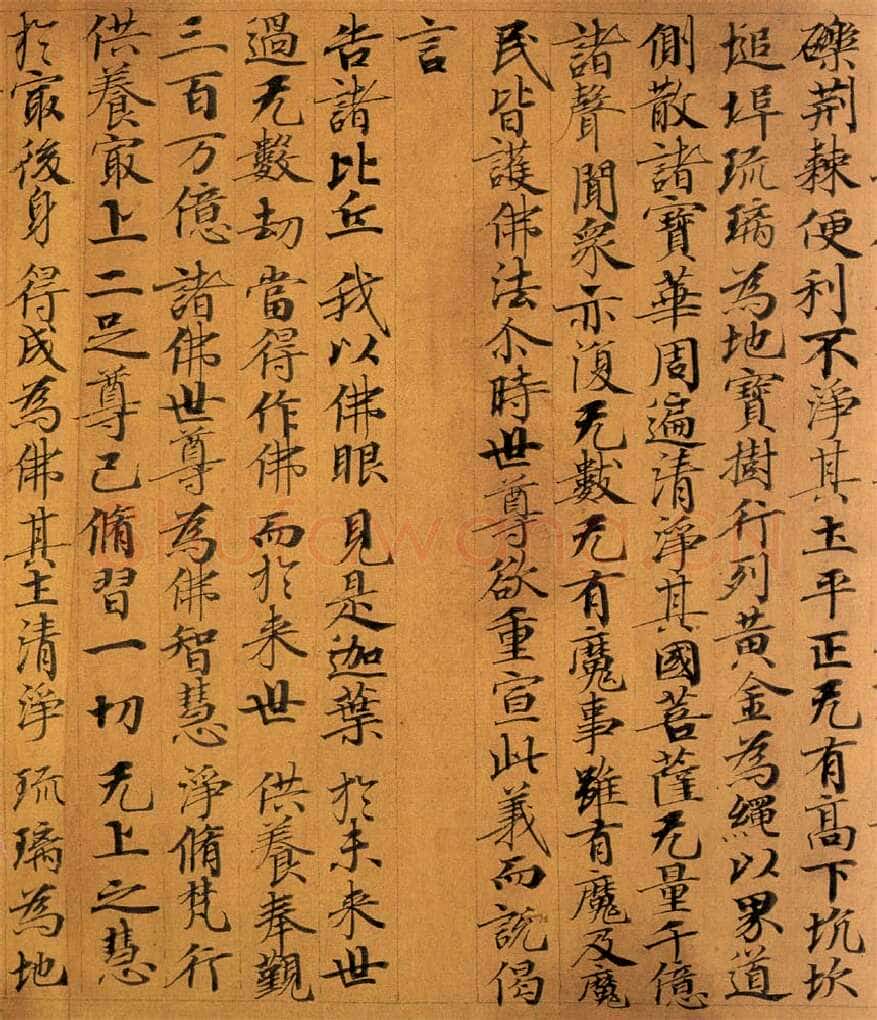 礫荆棘便利不淨其土平正无有高下坑坎
塠埠琉璃為地寶樹行列黃金為繩以界道
側散諸寶華周遍清淨其國菩薩无量千億
諸聲聞衆亦復无數无有魔事雖有魔及魔
民皆護佛法尒時世尊欲重宣此義而說偈
言
告諸比丘 我以佛眼 見是迦葉 於未来世
過无數劫 當得作佛 而於来世 供養奉覲
三百万億 諸佛世尊 為佛智慧 淨脩梵行
供養㝡上 二足尊已 脩習一切 无上之慧
於㝡後身 得成為佛 其土清淨 琉璃為地
shufawang.CN